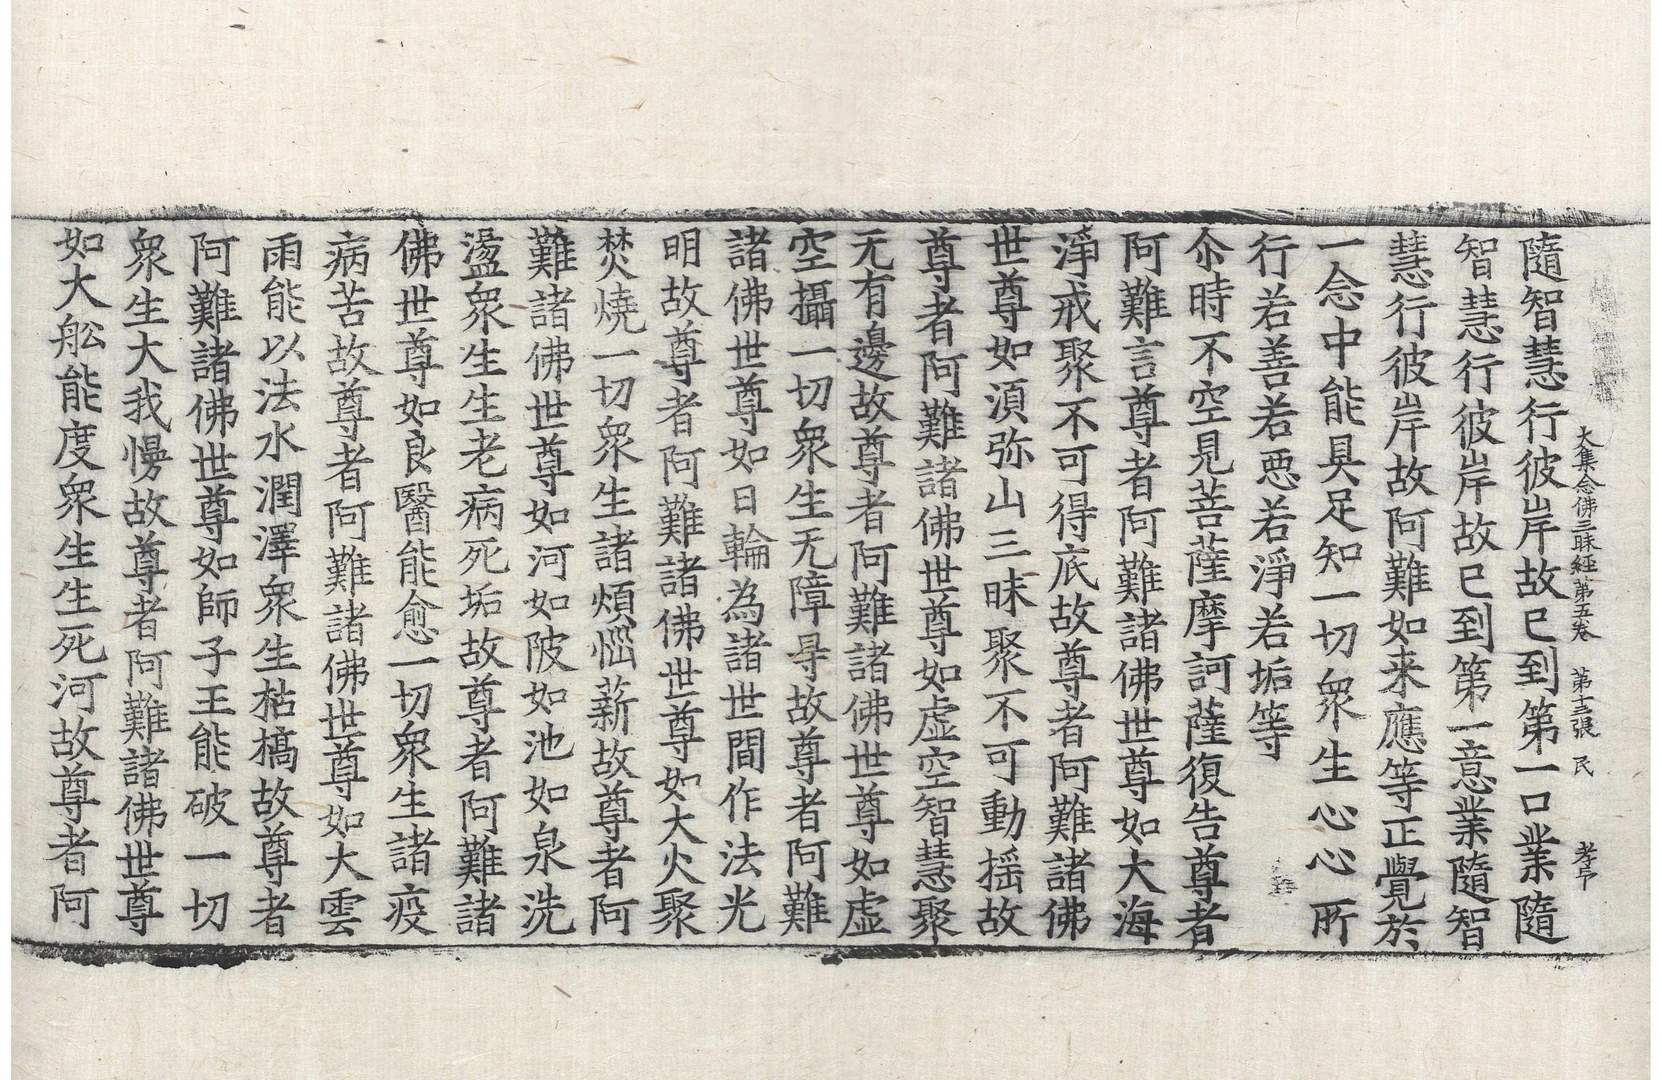 大集念佛三昧經第五卷 第十三張 民 孝弔
隨智慧行彼岸故已到第一口業隨
智慧行彼岸故已到第一意業隨智
慧行彼岸故阿難如来應等正覺於
一念中能具足知一切衆生心心所
行若善若悪若淨若垢等
尒時不空見菩薩摩訶薩復告尊者
阿難言尊者阿難諸佛世尊如大海
淨戒聚不可得底故尊者阿難諸佛
世尊如湏弥山三昧聚不可動揺故
尊者阿難諸佛世尊如虚空智慧聚
无有邊故尊者阿難諸佛世尊如虚
空攝一切衆生无障㝵故尊者阿難
諸佛世尊如日輪為諸世間作法光
明故尊者阿難諸佛世尊如大火聚
焚燒一切衆生諸煩惱薪故尊者阿
難諸佛世尊如河如陂如池如泉洗
盪衆生生老病死垢故尊者阿難諸
佛世尊如良醫能愈一切衆生諸疫
病苦故尊者阿難諸佛世尊如大雲
雨能以法水潤澤衆生枯槁故尊者
阿難諸佛世尊如師子王能破一切
衆生大我慢故尊者阿難諸佛世尊
如大舩能度衆生生死河故尊者阿